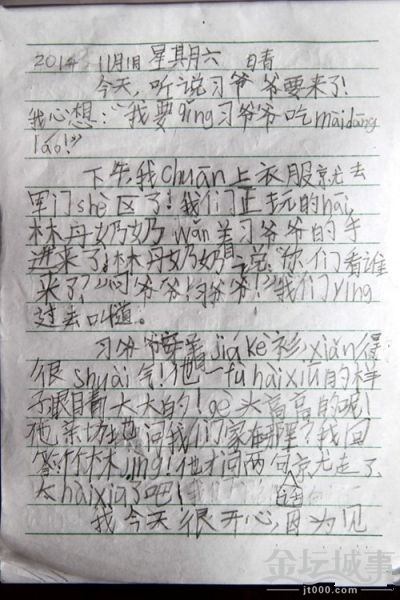 2014，11月1日 星期六 晴
今天，听说习爷爷要来了!
我心想："我要qǐng习爷爷吃màidāng
láo!"
下午我chuān上衣服就去
军门shè区了!我们正玩的hāi,
林丹奶奶wǎn着习爷爷的手
进来了!林丹奶奶说:"你们看谁
来了?""习爷爷!习爷爷!"我们yíng
过去叫道。
习爷爷穿着jiá kè衫,xiǎn得
很shuài气!他一fù hài xiū的样
子眼睛大大的!gè头高高的呢!
他亲切地问我们家在哪里?我回
答:竹林jìng!他才问两句就走了
太hài xiū了吧!
我今天很开心,因为见
金坛城事
jt000.com